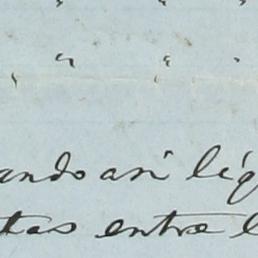 " " "
" " "
ando asi lig
tas entre l